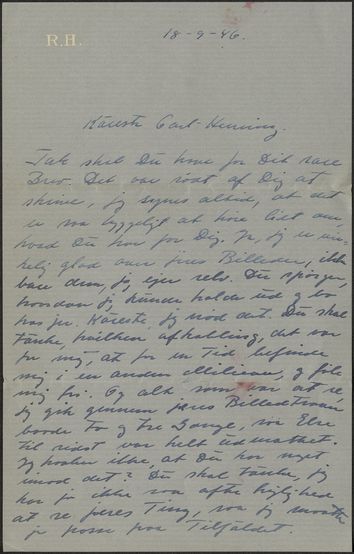 R.H.
18-9-46.
Käreste Carl-Henning.
Tak skal Du have for Dit rare
Brev. Det var sødt af Dig at
skrive, jeg synes altid, at det
er saa hyggeligt at høre lidt om,
hvad Du har for Dig. Ja, jeg er
glad over jeres Billeder, ikke
bare dem, jeg ejer selv. Du spørger,
hvordan jeg kunde holde ud at bo
hos jer. Käreste, jeg nød det. Du skal
tänke, hvilken afkobling, det var
for mig, at for en Tid befinde
mig i en anden Milieu, og føle
mig fri. Og alt som var at se,
jeg gik gennem jeres
to og tre Gange, saa Else
til sidst var helt udmattet.
Jeg haaber ikke, at Du har noget
imod det? Du skal tänke, jeg
har jo ikke saa ofte lejlighed
at se jeres Ting, saa jeg maatte
jo passe paa Tilfældet.